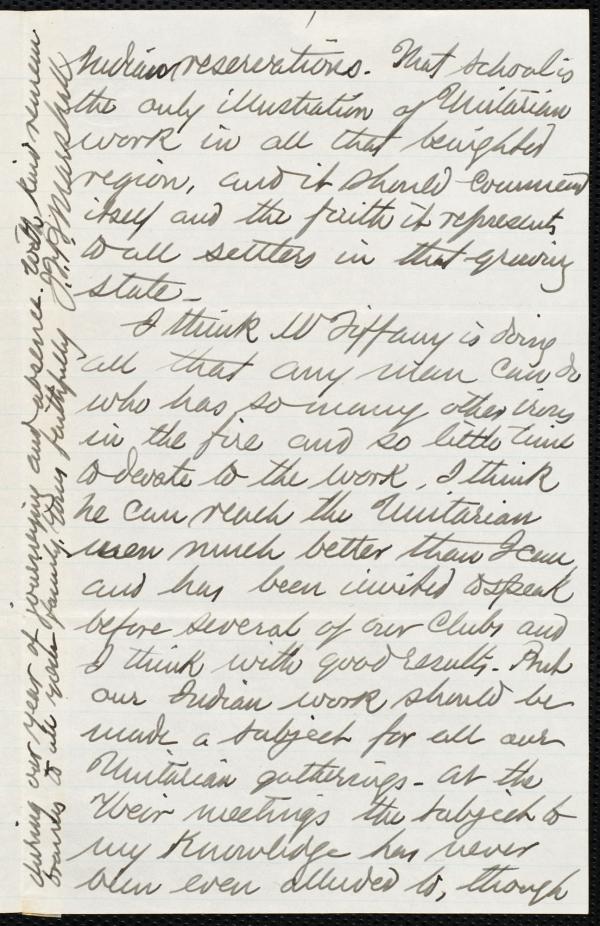 Indian reservations. That school is
the only illustration of Unitarian
work in all that benighted
region, and it should commend
itself and the faith it represents
to all settlers in that growing
state -
I think Mr Tiffany is doing
all that any man can do
who has so many other irons
in the fire and so little time
to devote to the work. I think
he can reach the Unitarian
men much better than I can
and has been invited to speak
before several of our Clubs and
I think with good results. But
our Indian work should be
made a subject for all our
Unitarian gatherings - at the
Weir meetings the subject to
my knowledge has never
been even alluded to, though
during our year of journeying and absence. With kind remem
brances to all your family, Yours faithfully
J.F.B. Marshall